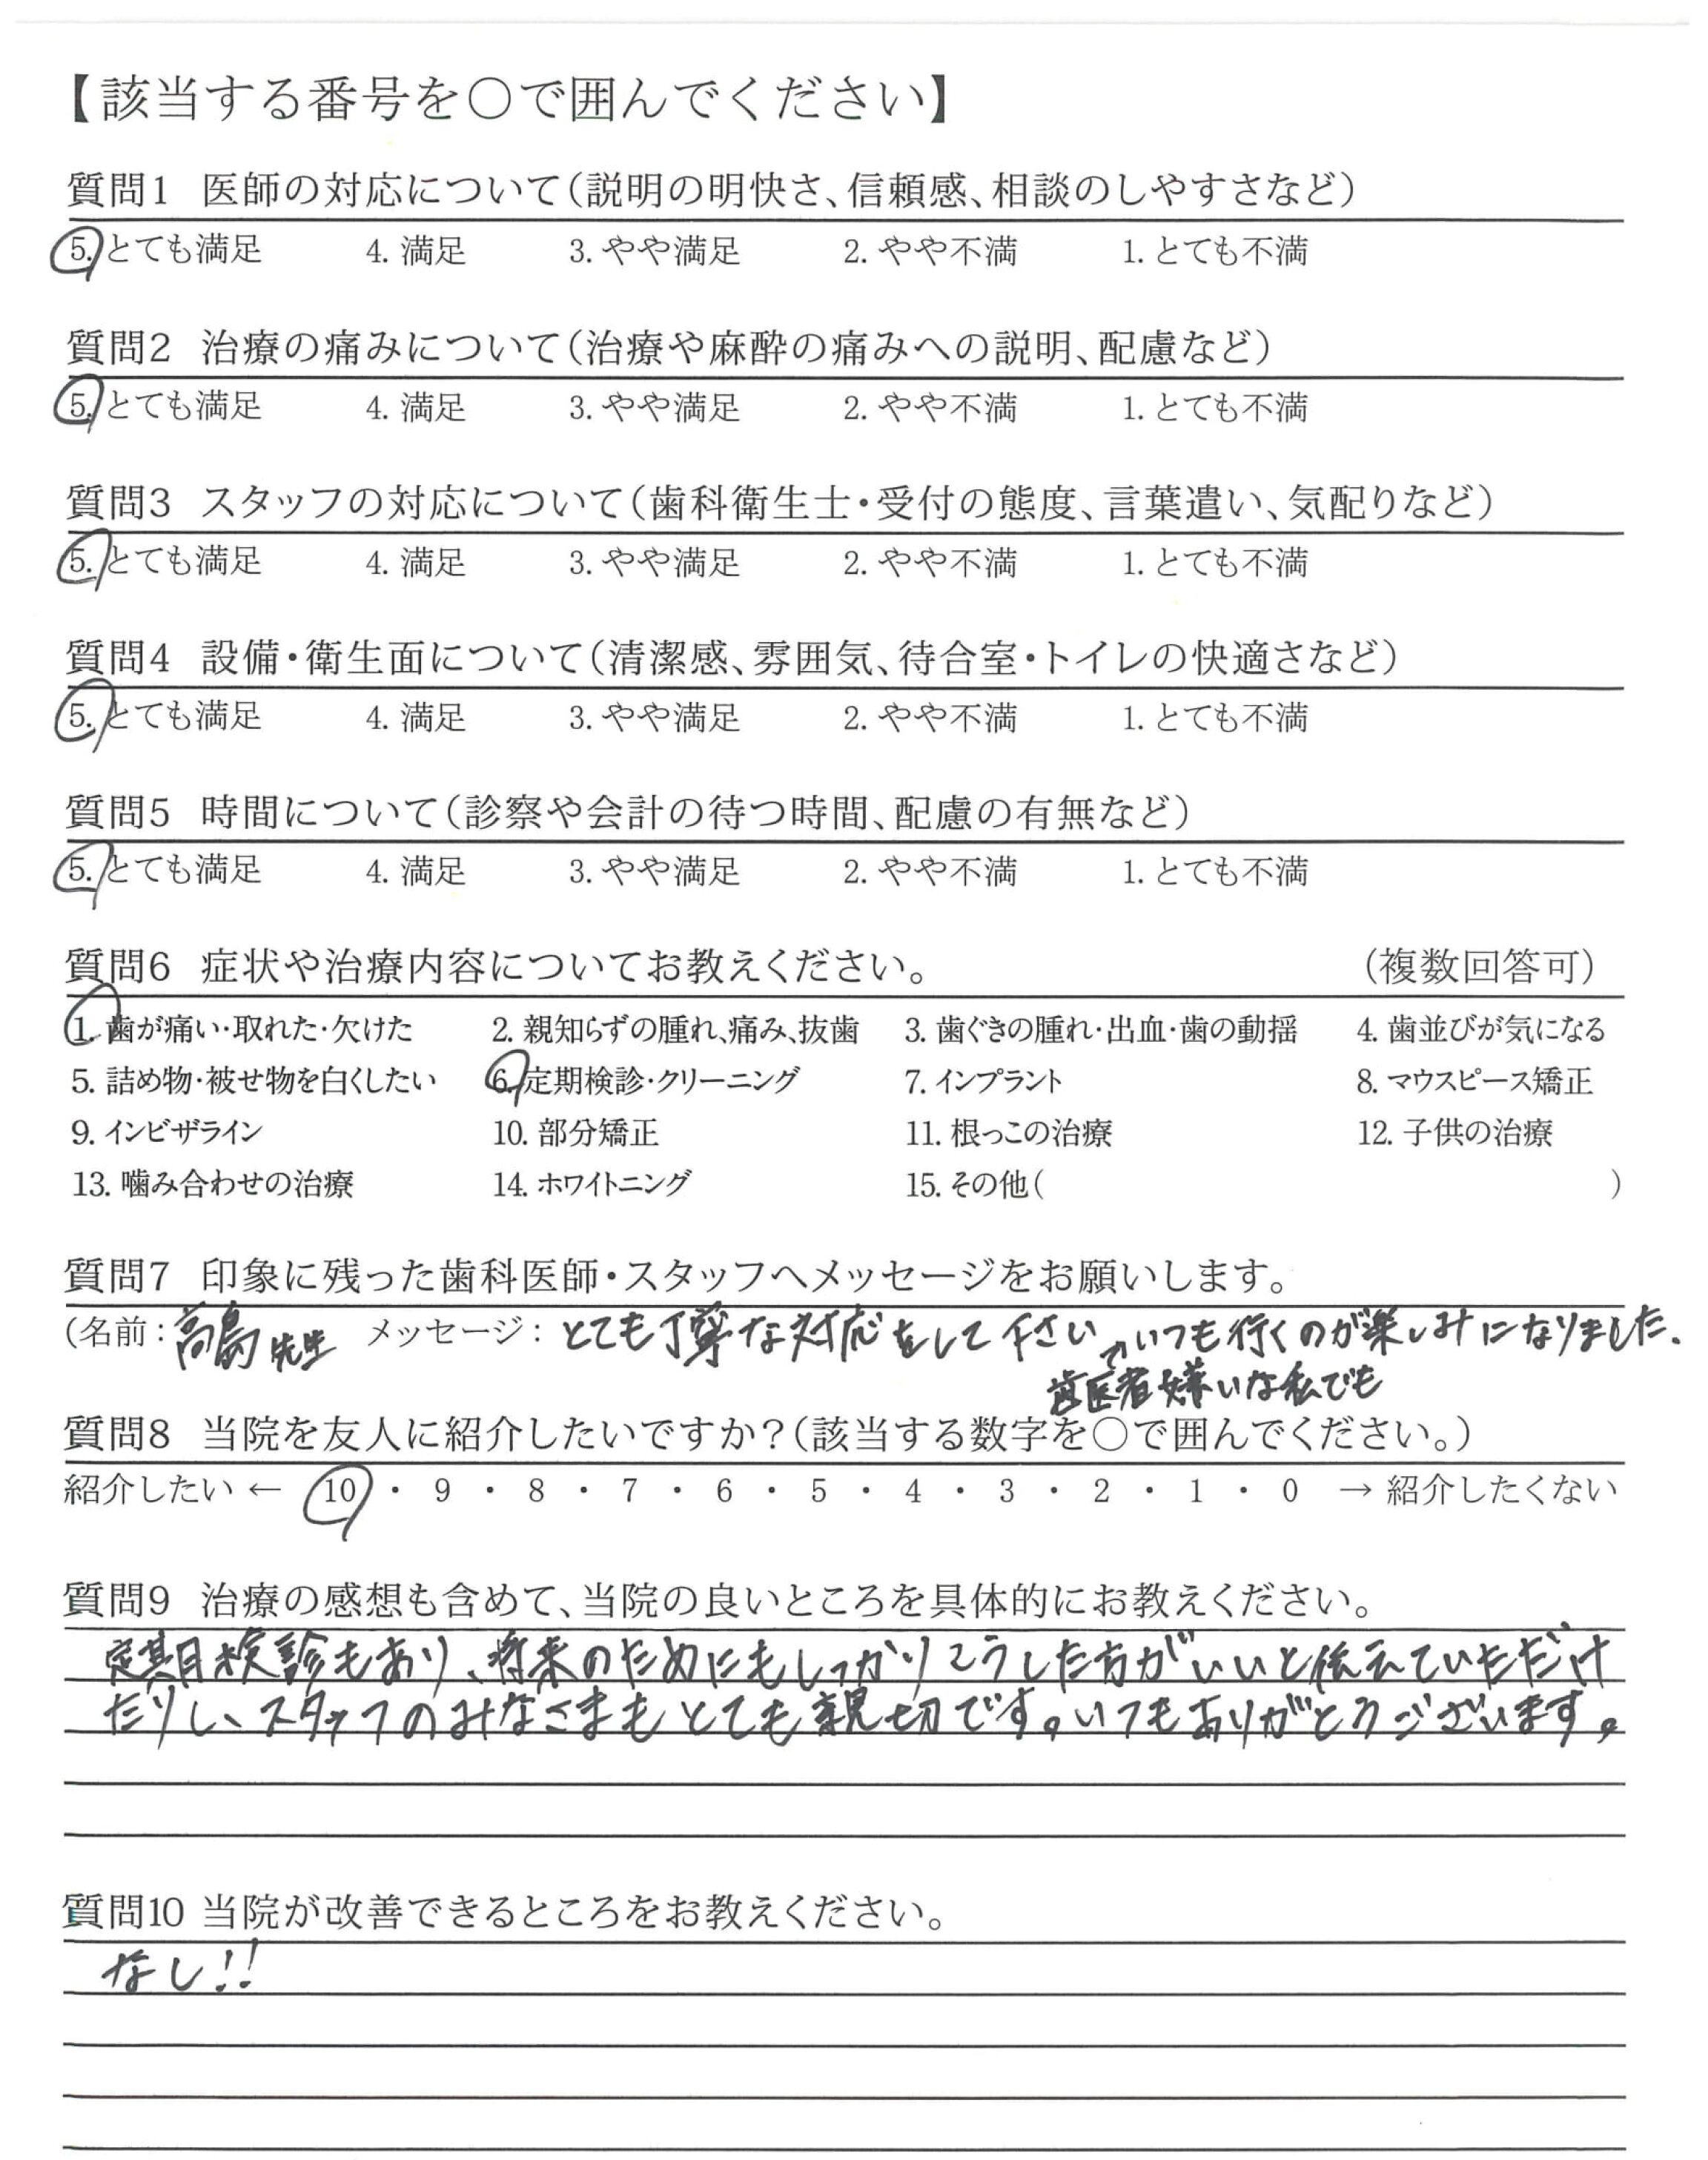 【該当する番号を○で囲んでください】
質問1 医師の対応について（説明の明快さ、信頼感、相談のしやすさなど）
5. とても満足 4. 満足 3. やや満足 2. やや不満 1. とても不満
質問2 治療の痛みについて（治療や麻酔の痛みへの説明、配慮など）
5. とても満足 4. 満足 3. やや満足 2. やや不満 1. とても不満
質問3 スタッフの対応について（歯科衛生士・受付の態度、言葉遣い、気配りなど）
5. とても満足 4. 満足 3. やや満足 2. やや不満 1. とても不満
質問4 設備・衛生面について（清潔感、雰囲気、待合室・トイレの快適さなど）
5. とても満足 4. 満足 3. やや満足 2. やや不満 1. とても不満
質問5 時間について（診察や会計の待つ時間、配慮の有無など）
5. とても満足 4. 満足 3. やや満足 2. やや不満 1. とても不満
質問6 症状や治療内容についてお教えください。 （複数回答可）
1. 歯が痛い・取れた・欠けた 2. 親知らずの腫れ、痛み、抜歯 3. 歯ぐきの腫れ・出血・歯の動揺 4. 歯並びが気になる
5. 詰め物・被せ物を白くしたい 6. 定期検診・クリーニング 7. インプラント 8. マウスピース矯正
9. インビザライン 10. 部分矯正 11. 根っこの治療 12. 子供の治療
13. 噛み合わせの治療 14. ホワイトニング 15. その他（ ）
質問7 印象に残った歯科医師・スタッフへメッセージをお願いします。
（名前：高島先生 メッセージ：とても丁寧な対応をして下さい、いつも行くのが楽しみになりました。
歯医者嫌いな私でも
質問8 当院を友人に紹介したいですか？（該当する数字を○で囲んでください。）
紹介したい ← 10 ・ 9 ・ 8 ・ 7 ・ 6 ・ 5 ・ 4 ・ 3 ・ 2 ・ 1 ・ 0 → 紹介したくない
質問9 治療の感想も含めて、当院の良いところを具体的にお教えください。
定期検診もあり、将来のためにもしっかりこうした方がいいと伝えていただけ
たりし、スタッフのみなさまもとても親切です。いつもありがとうございます。
質問10 当院が改善できるところをお教えください。
なし!!